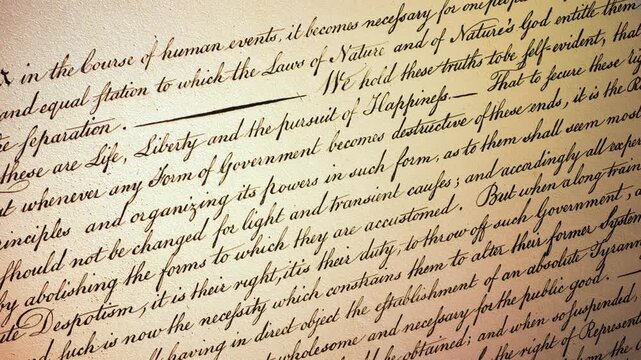 in the Course of human events, it becomes necessary for one people
and equal ſtation to which the Laws of Nature and of Nature's God entitle them
ſeparation. ——— We hold these truths to be ſelf-evident, that
these are Life, Liberty and the pursuit of Happineſs.— That to secure these
whenever any Form of Government becomes destructive of these ends, it is the
and organizing its powers in such form, as to them shall seem most
should not be changed for light and transient cauſes; and accordingly all
by abolishing the forms to which they are accustomed. But when a long train
Despotism, it is their right, it is their duty, to throw off such Government,
such is now the neceſsity which constrains them to alter their former
having in direct object the eſtablishment of an absolute
wholesome and necessary for the public good. —
be obtained; and when so suspended,
the right of